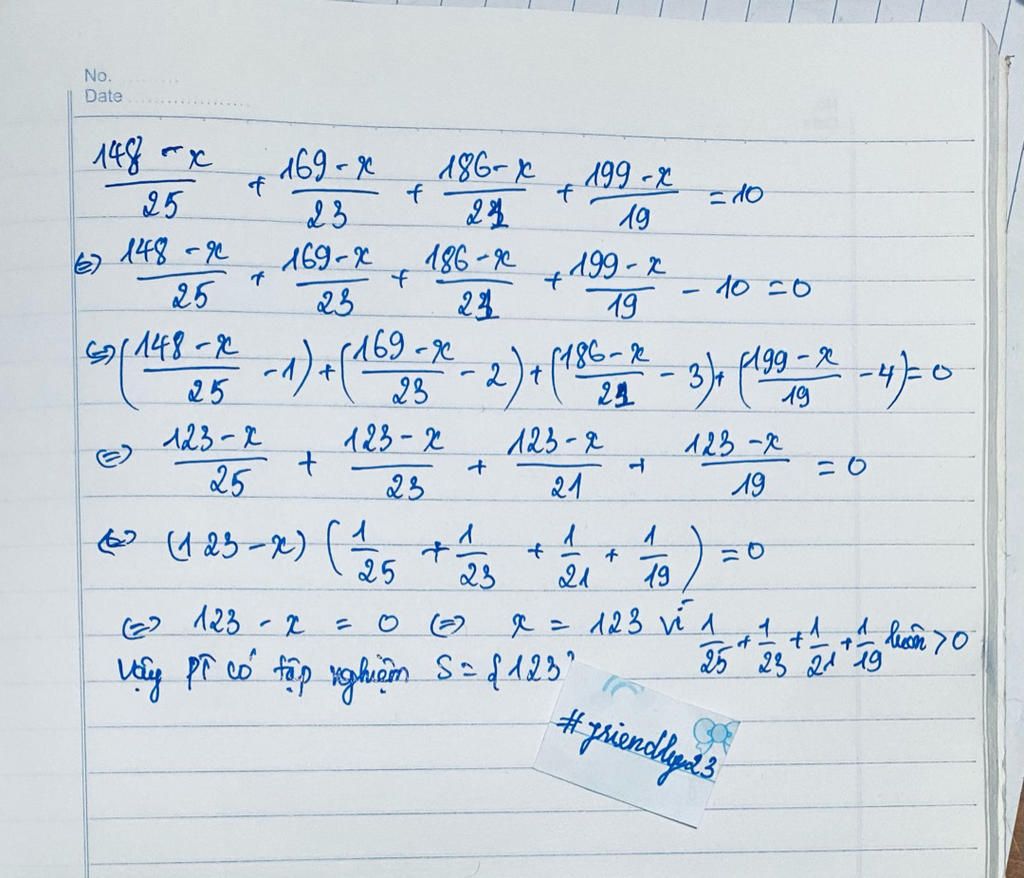 No.
Date
148 - x / 25 + 169 - x / 23 + 186 - x / 21 + 199 - x / 19 = 10
⇔ 148 - x / 25 + 169 - x / 23 + 186 - x / 21 + 199 - x / 19 - 10 = 0
⇔ (148 - x / 25 - 1) + (169 - x / 23 - 2) + (186 - x / 21 - 3) + (199 - x / 19 - 4) = 0
⇔ 123 - x / 25 + 123 - x / 23 + 123 - x / 21 + 123 - x / 19 = 0
⇔ (123 - x) (1/25 + 1/23 + 1/21 + 1/19) = 0
⇔ 123 - x = 0 ⇔ x = 123 vì 1/25 + 1/23 + 1/21 + 1/19 luôn > 0
Vậy PT có tập nghiệm S = {123}
#friendly23